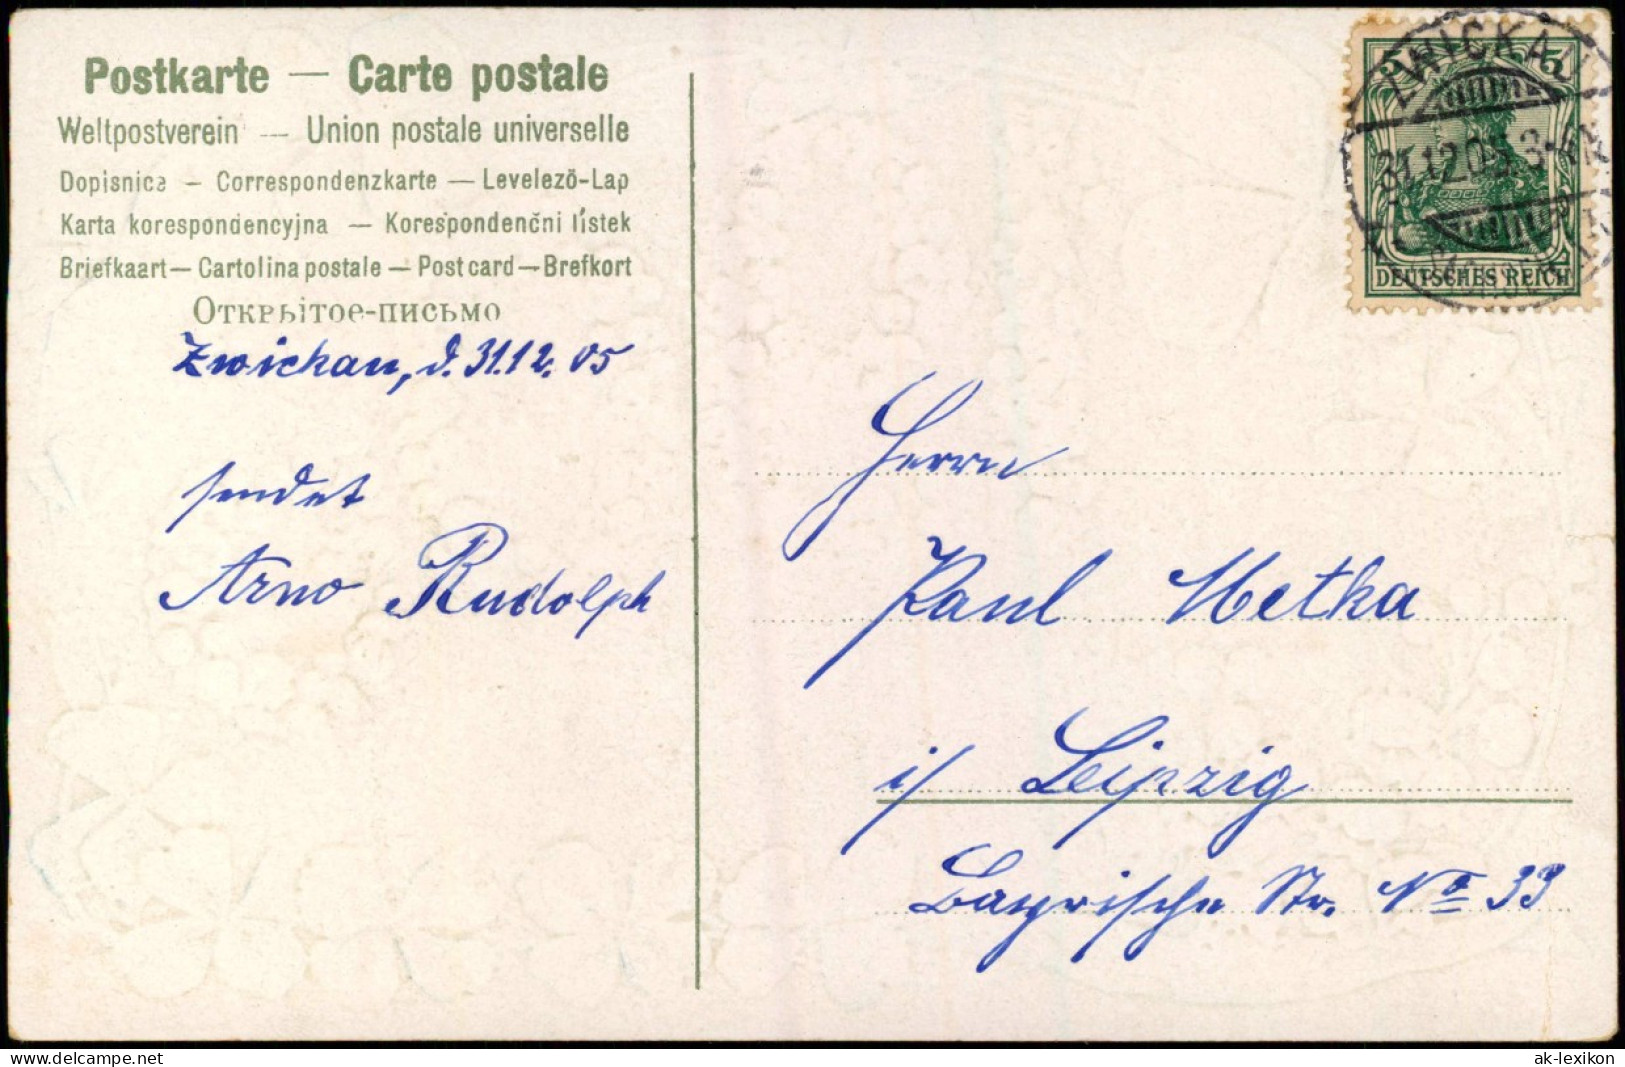 Postkarte — Carte postale
Weltpostverein — Union postale universelle
Dopisnica – Correspondenzkarte — Levelezö-Lap
Karta korespondencyjna — Korespondenční lístek
Briefkaart — Cartolina postale — Post card — Brefkort
Открытое-письмо
Zwickau, d. 31.12.05
sendet
Arno Rudolph
ZWICKAU
31.12.05 3-4N
5 5
DEUTSCHES REICH
Herrn
Paul Metka
i/ Leipzig
Bayrische Str. No 39
delcampe.net
ak-lexikon